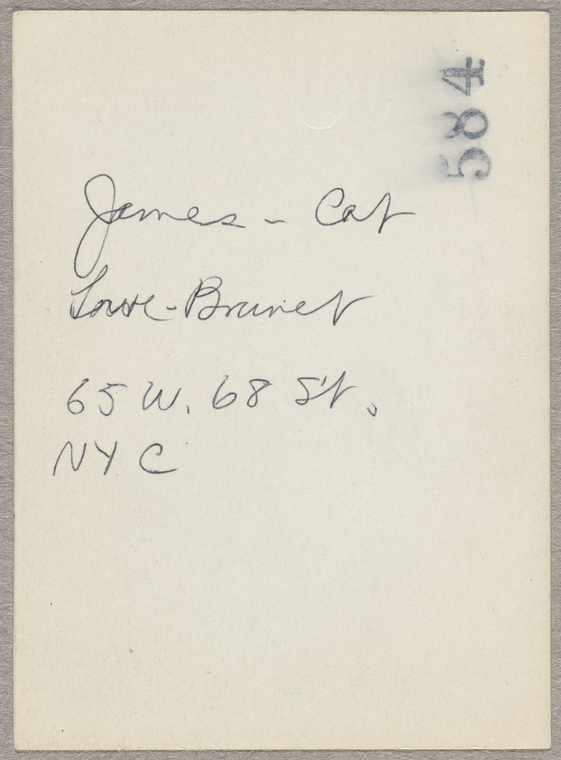 584
James - Cat
Lowe-Brunet
65 W. 68 St.
NYC